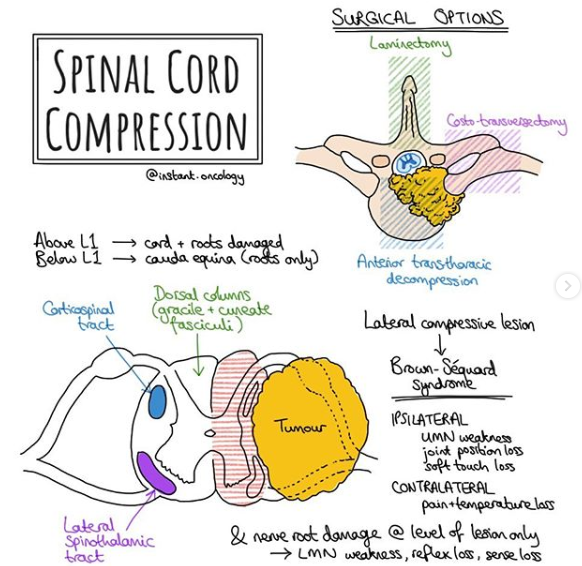 SPINAL CORD
COMPRESSION
@instant.oncology
SURGICAL OPTIONS
Laminectomy
Costo-transversectomy
Anterior transthoracic
decompression
Above L1 → cord + roots damaged
Below L1 → cauda equina (roots only)
Corticospinal
tract
Dorsal columns
(gracile + cuneate
fasciculi)
Tumour
Lateral
Spinothalamic
tract
Lateral compressive lesion
↓
Brown-Séquard
syndrome
IPSILATERAL
UMN weakness
joint position loss
soft touch loss
CONTRALATERAL
pain + temperature loss
& nerve root damage @ level of lesion only
→ LMN weakness, reflex loss, sense loss